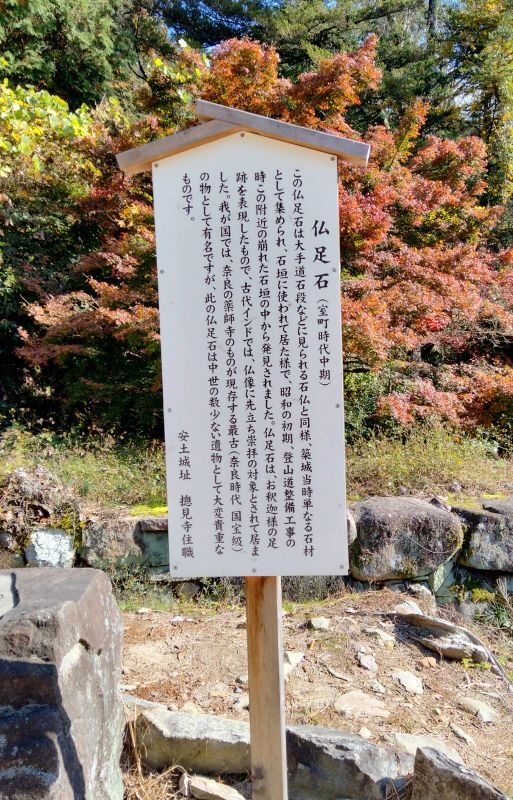 仏足石（室町時代中期）
この仏足石は大手道石段などに見られる石仏と同様、築城当時単なる石材
として集められ、石垣に使われて居た様で、昭和の初期、登山道整備工事の
時この附近の崩れた石垣の中から発見されました。仏足石は、お釈迦様の足
跡を表現したもので、古代インドでは、仏像に先立ち崇拝の対象とされて居ま
した。我が国では、奈良の薬師寺のものが現存する最古（奈良時代、国宝級）
の物として有名ですが、此の仏足石は中世の数少ない遺物として大変貴重な
ものです。
安土城址　摠見寺住職